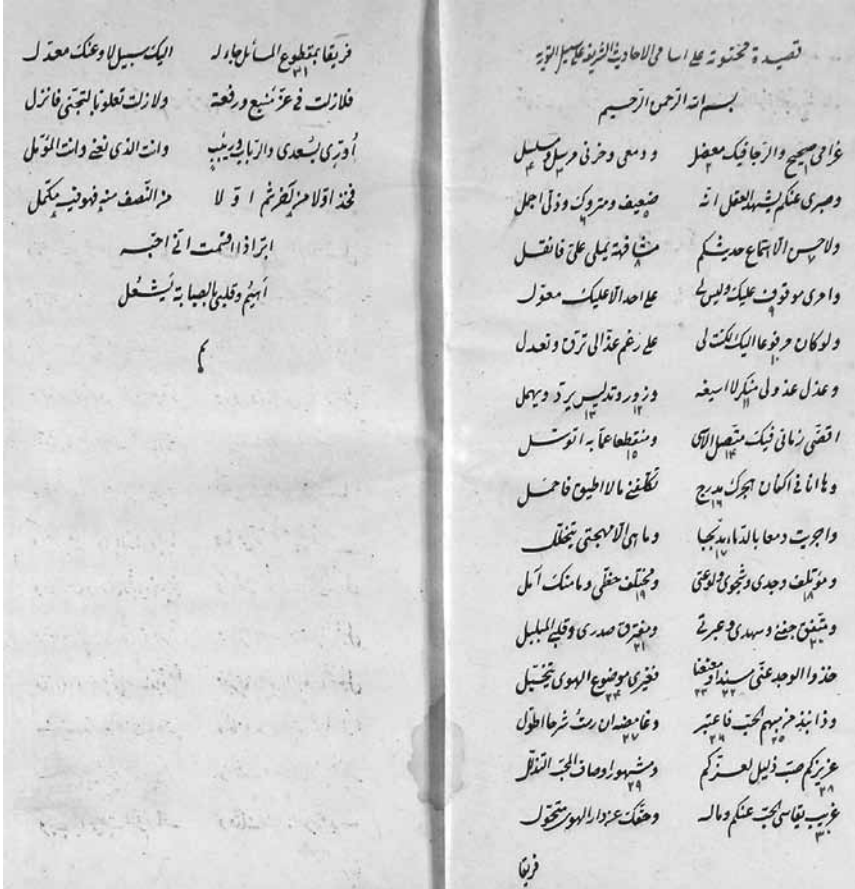 قصيدة محتوية على اسامى الاحاديث الشريفة على سبيل التورية
بسم الله الرحمن الرحيم
غرامى صحيح والرجا فيك معضل ودمعى وحزنى مرسل ومسلسل
١ ٢ ٣ ٤
وصبرى عنكم يشهد العقل انه ضعيف ومتروك وذلى اجمل
٥ ٦
ولا حسن الا استماع حديثكم مشافهة يملى على فانقل
٧ ٨
وامرى موقوف عليك وليس لى على احد الا عليك معول
٩
ولو كان مرفوعا اليك لكنت لى على رغم عذالى ترق وتعدل
١٠
وعذل عذولى منكر لا اسيغه وزور وتدليس يرد ويهمل
١١ ١٢ ١٣
اقضى زمانى فيك متصل الاسى ومنقطعا عما به اتوسل
١٤ ١٥
وها انا فى اكفان هجرك مدرج تكلفنى مالا اطيق فاحمل
١٦
واجريت دمعا بالدماء مدبجا وما هى الا مهجتى يتخلل
١٧
ومؤتلف وجدى وشجوى ولوعتى ومختلف حظى وما منك آمل
١٨ ١٩
ومتفق جفنى وسهدى وعبرتى ومفترق صدرى وقلبى المبلبل
٢٠ ٢١
خذوا الوجد عنى مسندا ومعنعنا فغيرى موضوع الهوى يتخيل
٢٢ ٢٣ ٢٤
وذا نبذ من مبهم الحب فاعتبر وغامضه ان رمت شرحا اطول
٢٥ ٢٦ ٢٧
عزيزكم صب ذليل لعزكم ومشهور اوصاف المحب التذلل
٢٨ ٢٩
غريب يقاسى الحب عنكم وماله وحقك عن دار الهوى متحول
٣٠
فريقا
فريقا بمقطوع المسائل جاء له اليك سبيل لا وعنك معدل
٣١
فلا زلت فى عز منيع ورفعة ولا زلت تعلو بالتجنى فانزل
أورى بسعدى والرباب وزينب وانت الذى نعنى وانت المؤمل
فخذ اولا من آخر ثم اولا من النصف منه فهو فيه مكمل
ابر اذا اقسمت انى احبه
اهيم وقلبى بالصبابة يشعل
م